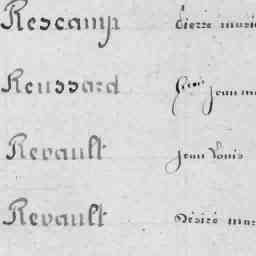 Rescamp Pierre
Roussard Jean
Revault Jean Louis
Revault Désiré